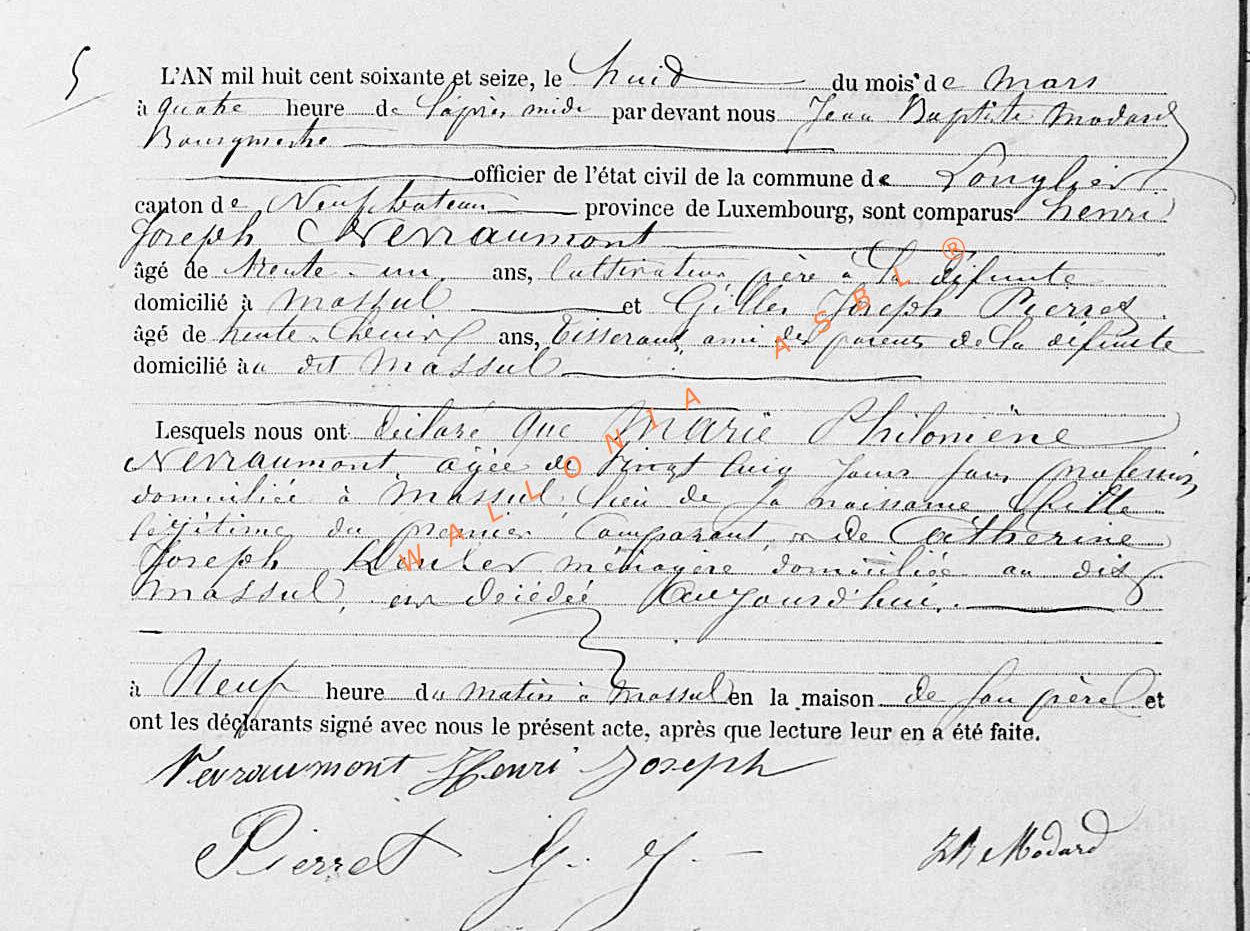 5
L'AN mil huit cent soixante et seize, le huid du mois de mars
à quatre heure de l'après midi par devant nous Jean Baptiste Modard
Bourgmestre
officier de l'état civil de la commune de Longlier
canton de Neufchateau province de Luxembourg, sont comparus henri
Joseph Nevraumont
âgé de trente un ans, Cultivateur, père à la défunte
domicilié à Massul et Gilles Joseph Pierret
âgé de trente ans, tisserand, ami des parents de la défunte
domicilié au dit Massul
Lesquels nous ont déclaré que Marie Philomène
Nevraumont, agée de vingt cinq jours sans profession
domiciliée à Massul, lieu de sa naissance fille
légitime du premier Comparant, et de Catherine
Joseph ménagère domiciliée au dit
Massul, est décédée aujourd'hui,
à Neuf heure du matin à Massul en la maison de son père et
ont les déclarants signé avec nous le présent acte, après que lecture leur en a été faite.
Névraumont Henri Joseph
Pierret G. J.
JB Modard
WALLONIA ASBL ®